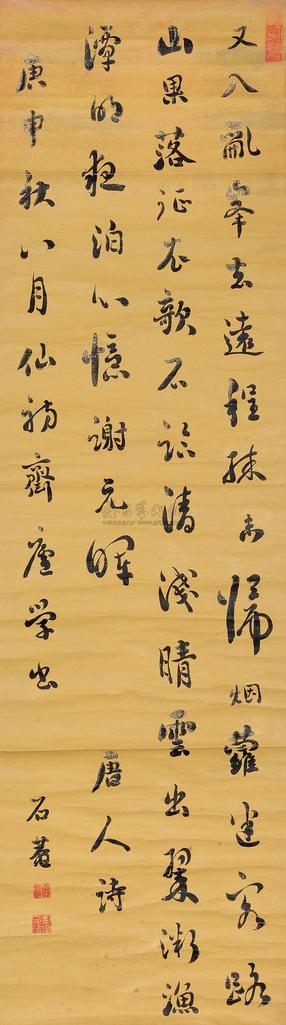 又入亂峯去遠程殊未歸烟蘿迷客路
山果落征衣欹石臨清淺晴雲出翠微漁
潭明夜泊心憶謝元暉 唐人詩
庚申秋八月仙舫齋廬學書 石菴